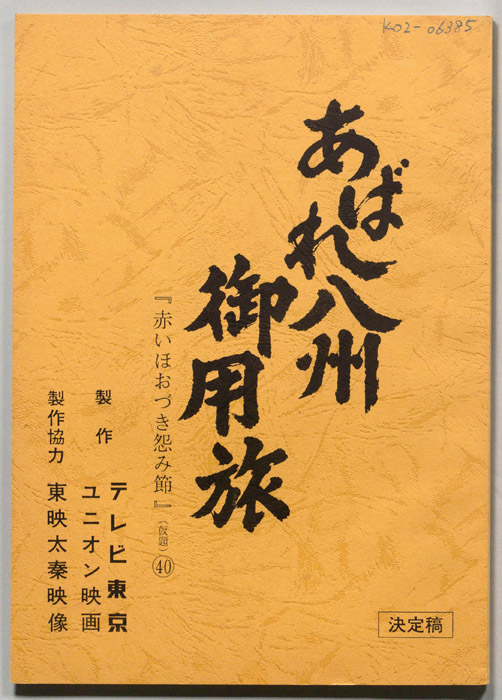 K02-06385
あばれ八州
御用旅
『赤いほおづき怨み節』(仮題)㊵
製作 テレビ東京
ユニオン映画
製作協力 東映太秦映像
決定稿